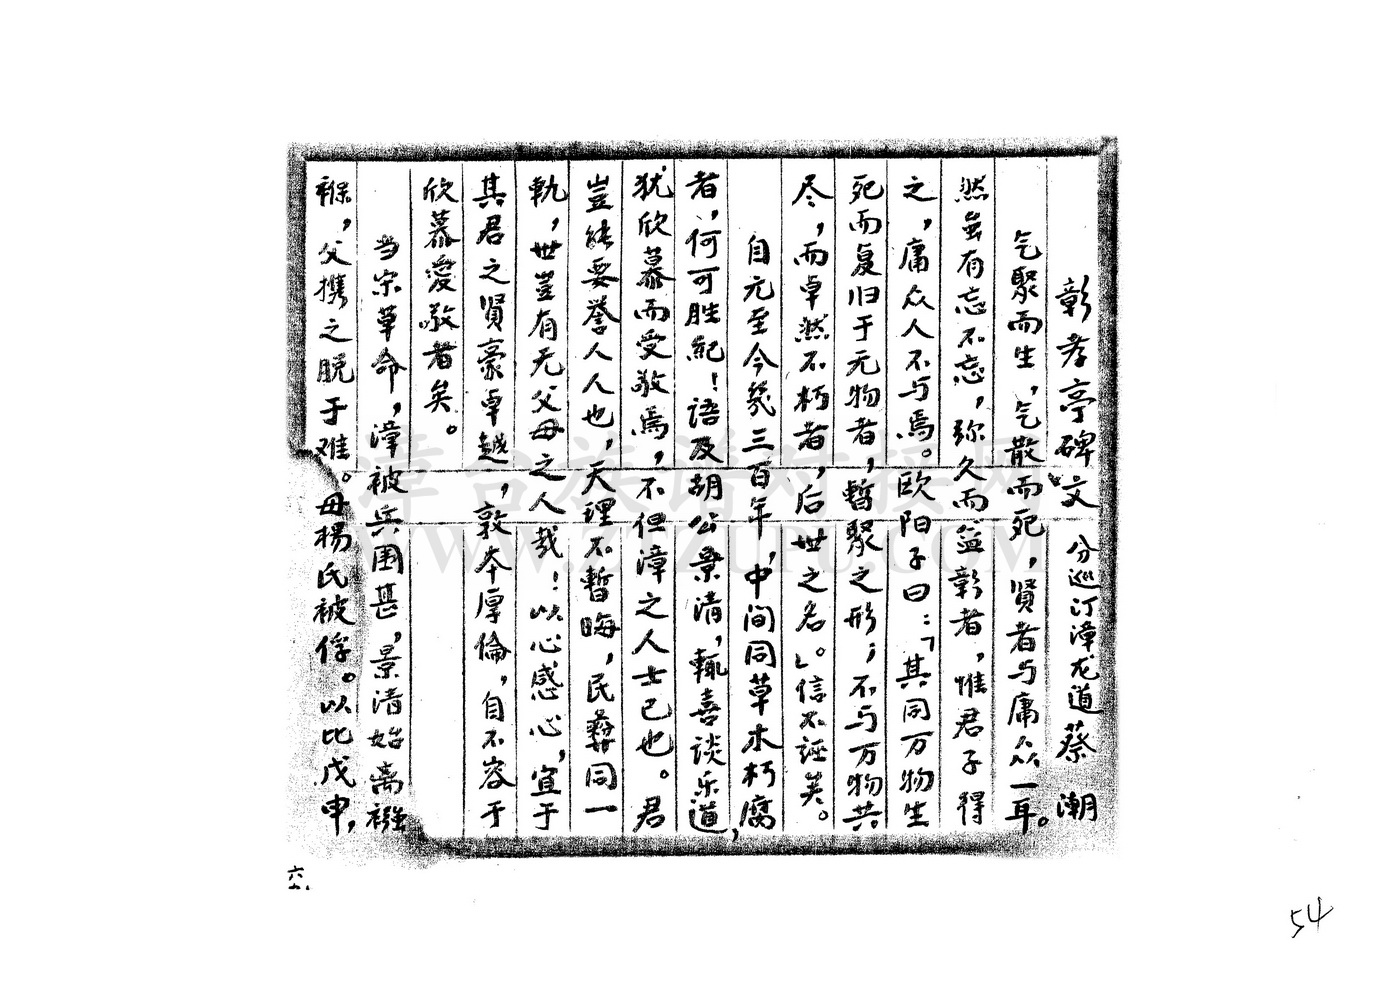 彰孝亭碑文 分巡汀漳龙道蔡 潮
乞聚而生，乞散而死，贤者与庸众一耳。
然虽有忘不忘，弥久而益彰者，惟君子得
之，庸众人不与焉。欧阳子曰：“其同万物生
死而复归于无物者，暂聚之形；不与万物共
尽，而卓然不朽者，后世之名”。信不诬矣。
自元至今几三百年，中间同草木朽腐
者，何可胜纪！语及胡公景清，辄喜谈乐道，
犹欣慕而受敬焉，不但漳之人士已也。君
豈能要誉人人也，天理不暫晦，民彝同一
軌，世豈有无父母之人哉！以心感心，宜于
其君之贤豪卓越，敦本厚倫，自不容于
欣慕愛敬者矣。
当宗革命，漳被兵围甚，景清始离襁
褓，父携之脱于难。母杨氏被俘。以比戊申，
六
54
漳台族谱对接网
WWW.ZTZUPU.COM